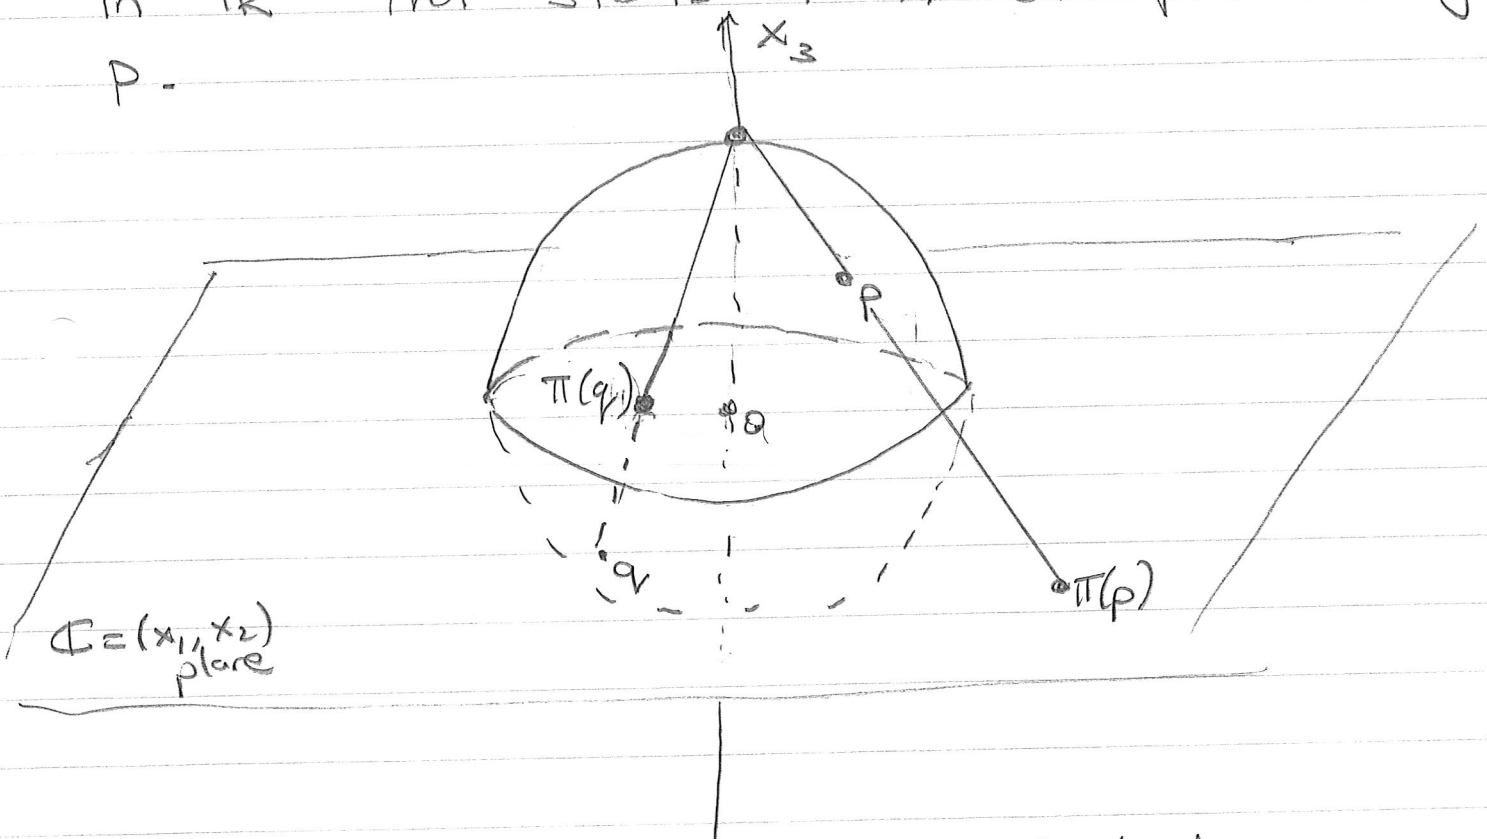 in
P.
x₃
p
π(q)
0
q
π(p)
ℂ = (x₁, x₂)
plane